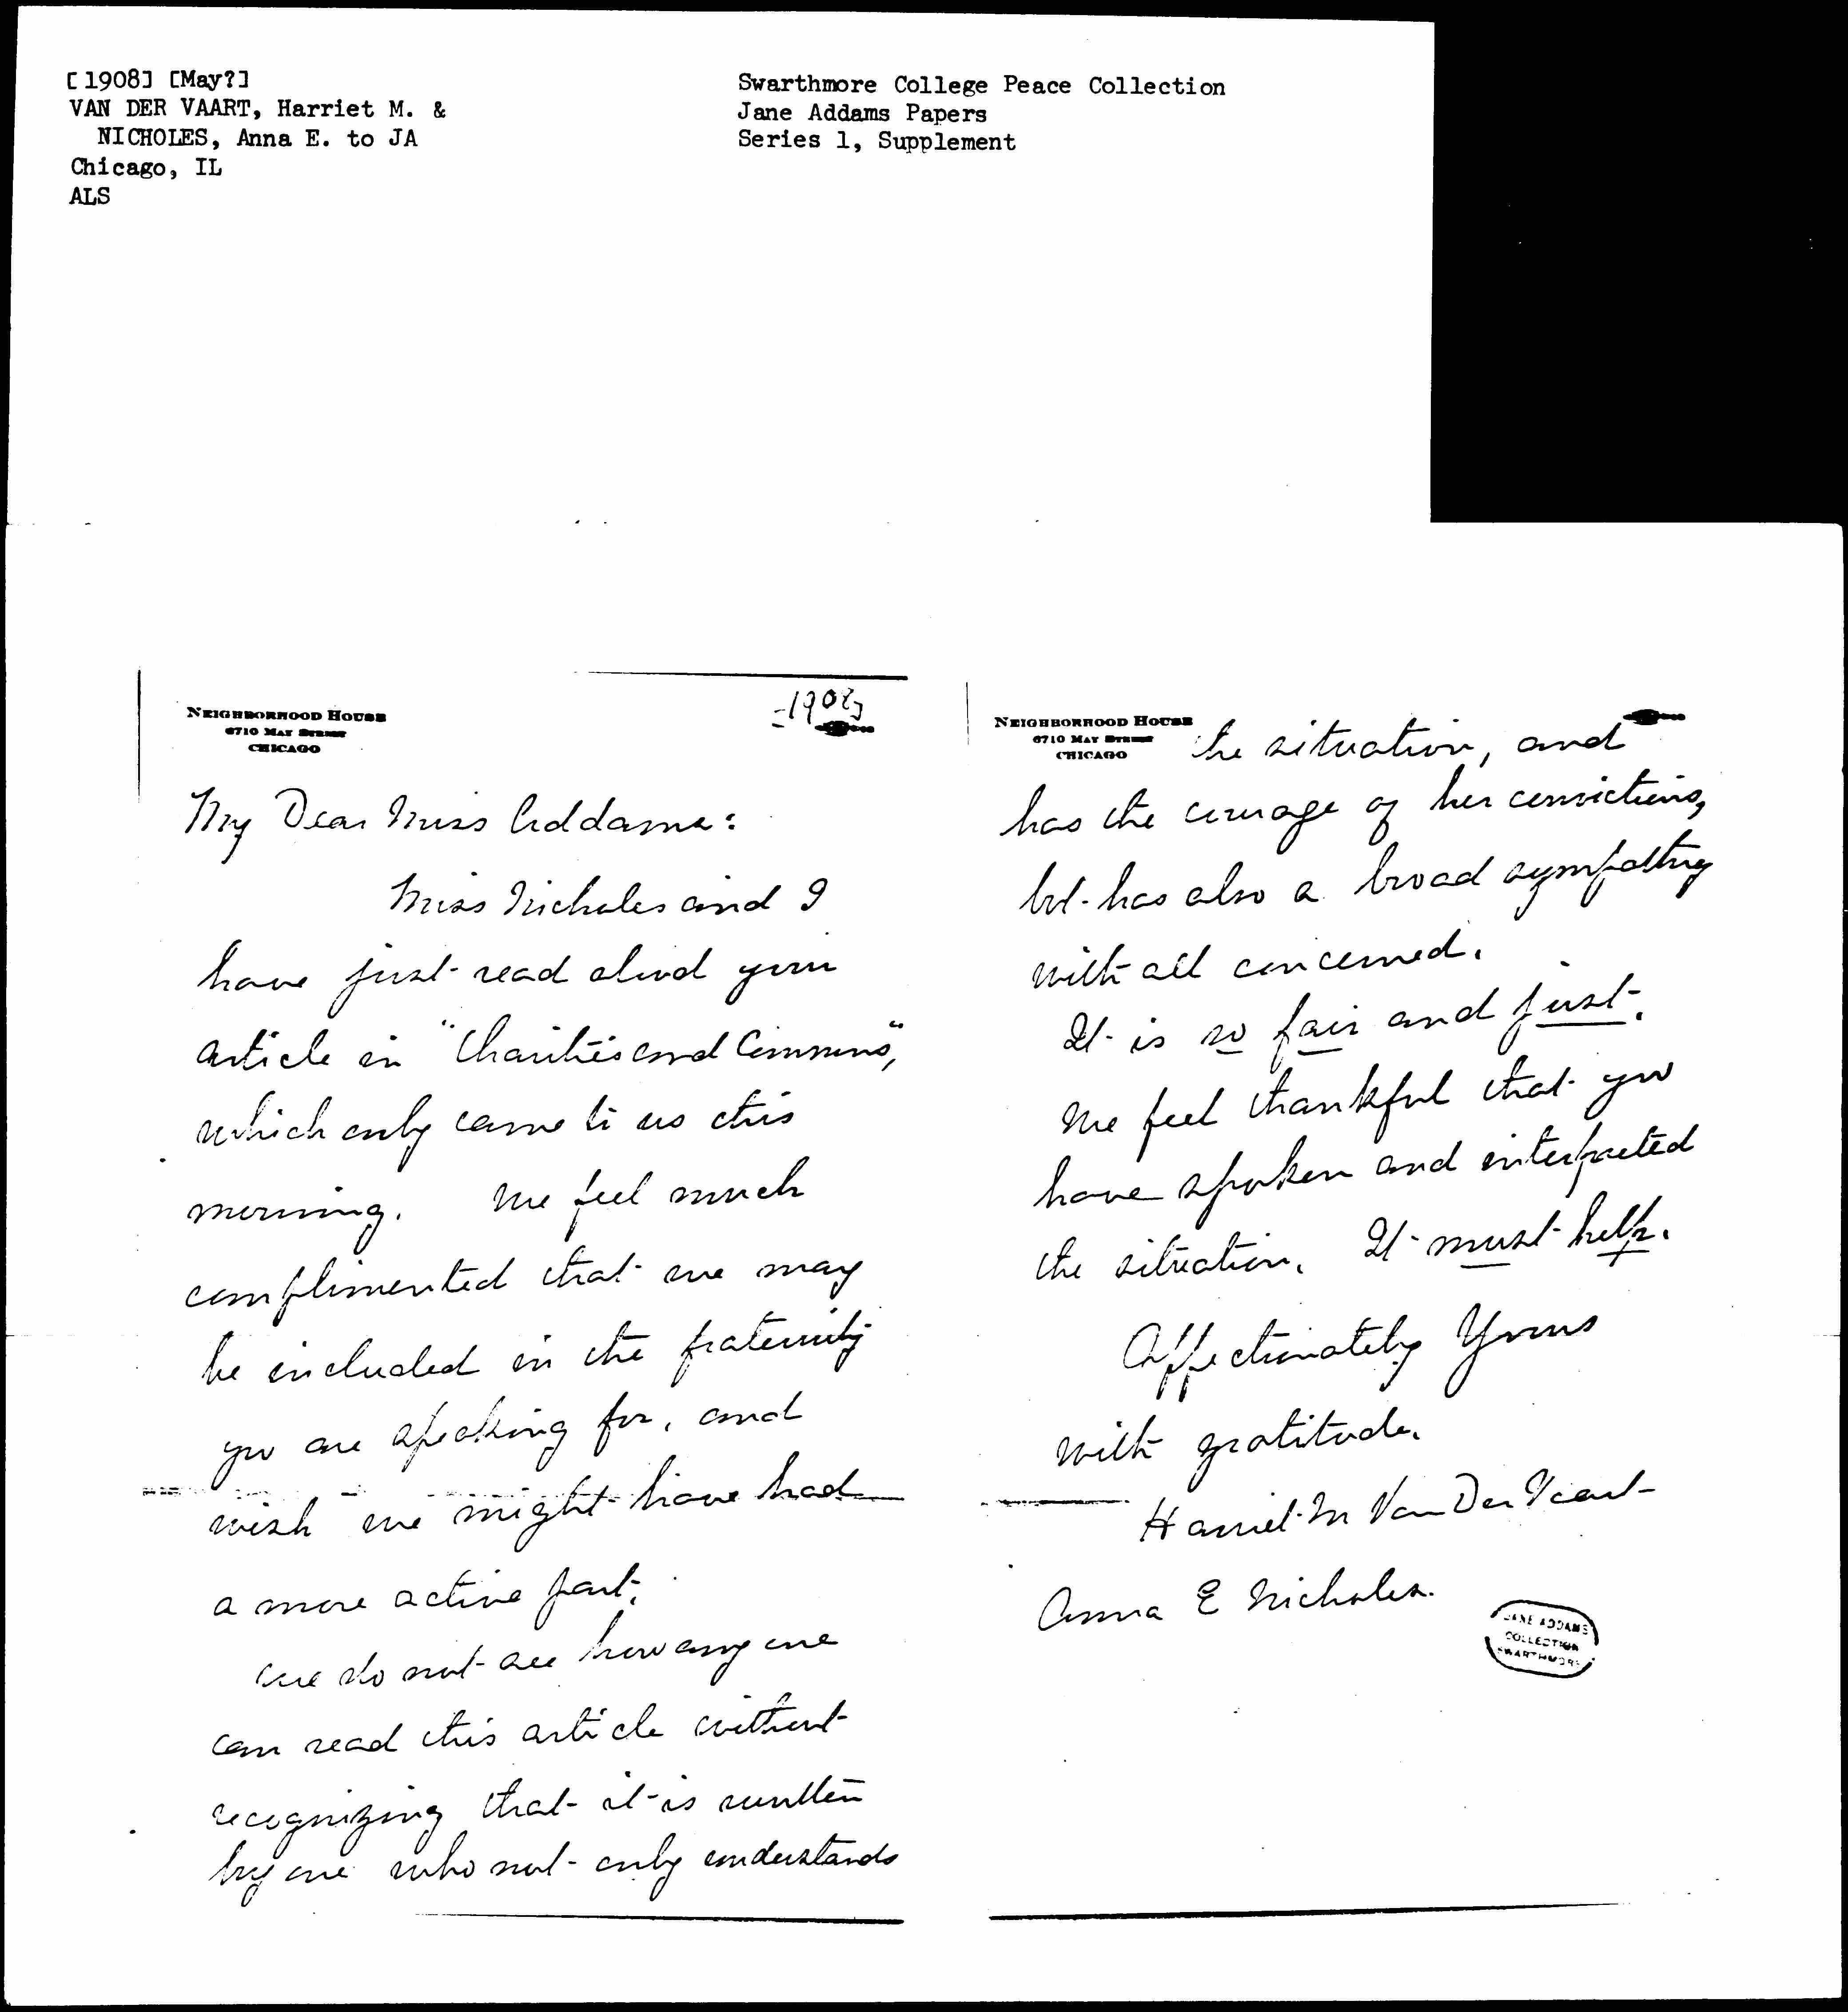 [1908] [May?]
VAN DER VAART, Harriet M. &
NICHOLES, Anna E. to JA
Chicago, IL
ALS
Swarthmore College Peace Collection
Jane Addams Papers
Series 1, Supplement
NEIGHBORHOOD HOUSE
6710 MAY STREET
CHICAGO
-1908]
My Dear Miss Addams:
Miss Nicholes and I
have just read aloud your
article in "Charities and Commons",
which only came to us this
morning. We feel much
complimented that we may
be included in the fraternity
you are speaking for, and
wish we might have had
a more active part.
We do not see how any one
can read this article without
recognizing that it is written
by one who not only understands
NEIGHBORHOOD HOUSE
6710 MAY STREET
CHICAGO
the situation, and
has the courage of her convictions,
but has also a broad sympathy
with all concerned.
It is so fair and just.
We feel thankful that you
have spoken and interpreted
the situation. It must help.
Affectionately Yours
with gratitude.
Harriet M Van Der Vaart
Anna E Nicholes.
JANE ADDAMS
COLLECTION
SWARTHMORE